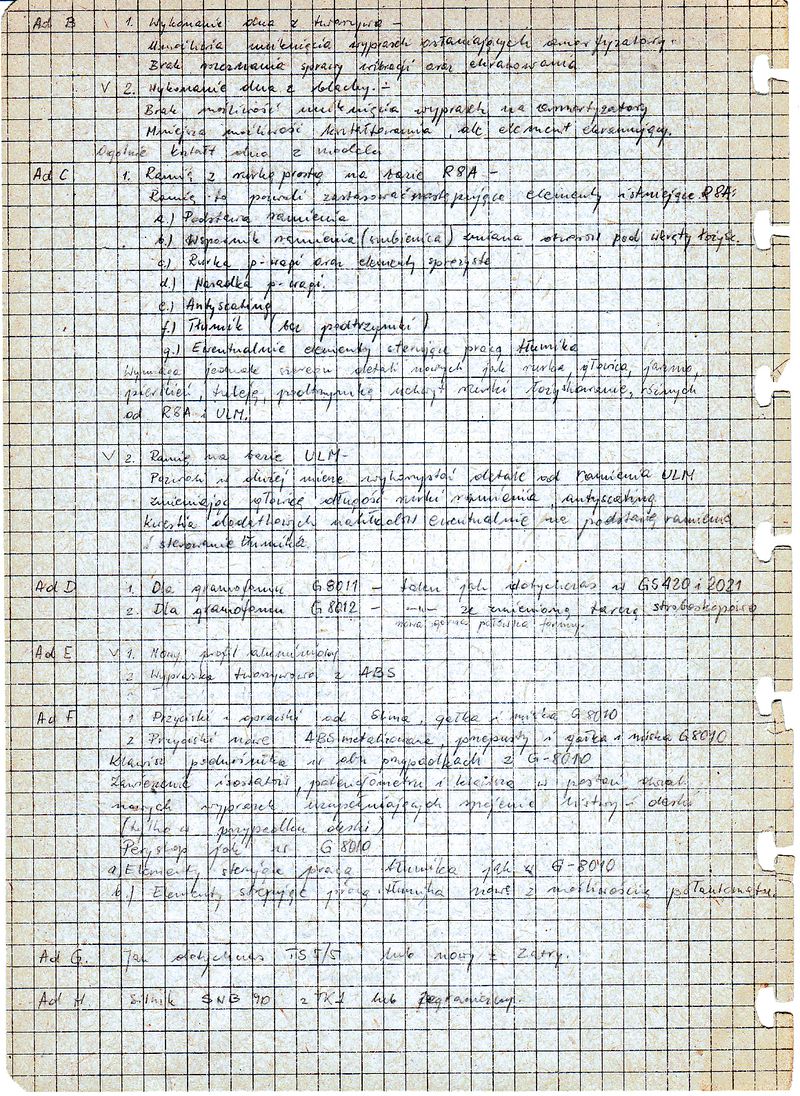 Ad B 1. Wykonanie dna z tworzywa –
Umożliwia uniknięcia wyprasek osłaniających amortyzatory.
Brak rozeznania sprawy wibracji oraz ekranowania
V 2. Wykonanie dna z blachy. –
Brak możliwość uniknięcia wyprasek na amortyzatory
Mniejsza możliwość kształtowania, ale element ekranujący.
Ogólnie kształt dna z modelu
Ad C 1. Ramię z rurką prostą na bazie R8A –
Ramię to pozwoli zastosować następujące elementy istniejące R8A:
a.) Podstawa ramienia
b.) Wspornik ramienia (szubienica) zmiana otworów pod wkręty łożysk.
c.) Rurka p-wagi oraz elementy sprężyste
d.) Nasadka p-wagi.
e.) Antyscating
f.) Tłumik (bez podtrzymki)
g.) Ewentualnie elementy sterujące pracą tłumika
Wymaga jednak szeregu detali nowych jak rurka, głowica, jarzmo,
pierścień, tuleja, podtrzymka uchwyt rurki łożyskowanie, różnych
od R8A i ULM.
V 2. Ramię na bazie ULM –
Pozwoli w dużej mierze wykorzystać detale od ramienia ULM
zmieniając głowicę długość rurki ramienia, antyscating
kwestia dodatkowych nakładów ewentualnie na podstawę ramienia
i sterowanie tłumika.
Ad D 1. Dla gramofonu G8011 – talerz jak dotychczas w GS420 i 2021
2. Dla gramofonu G8012 – —"— ze zmienioną tarczą stroboskopową
nowa górna połówka formy.
Ad E V 1. Nowy profil aluminiowy
2 Wypraska tworzywowa z ABS
Ad F 1 Przyciski i oprawki od gałka i miska G 8010
2 Przyciski nowe ABS metalizowane, przepusty i gałka i miska G8010
Klawisz podnośnika w obu przypadkach z G-8010
Zawieszenie isostatów, potencjometru i klawisza w postaci dwóch
nowych wyprasek uzupełniających spojenie listwy i deski
(tylko w przypadku deski)
Peryskop jak w G 8010
a) Elementy sterujące pracą tłumika jak w G-8010
b.) Elementy sterujące pracą tłumika nowe z możliwością półautomatu.
Ad G. Jak dotychczas TS 5/5 lub nowy z Zatry.
Ad H Silnik SNB 90 z TK1 lub zagraniczny.